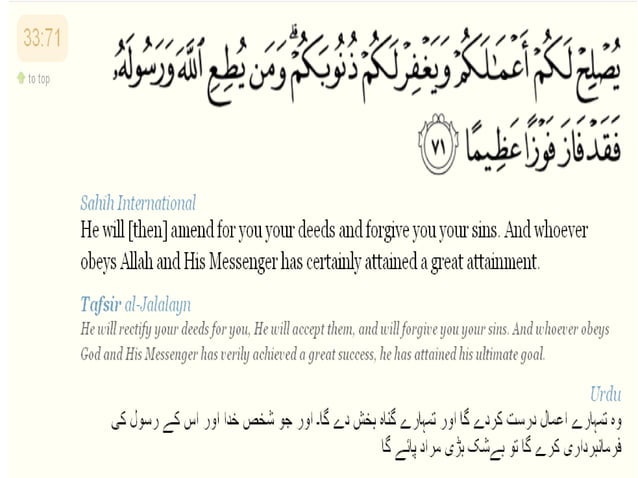 33:71
to top
يُصْلِحْ لَكُمْ أَعْمَـٰلَكُمْ وَيَغْفِرْ لَكُمْ ذُنُوبَكُمْ ۗ وَمَن يُطِعِ ٱللَّهَ وَرَسُولَهُۥ
فَقَدْ فَازَ فَوْزًا عَظِيمًا ٧١
Sahih International
He will [then] amend for you your deeds and forgive you your sins. And whoever
obeys Allah and His Messenger has certainly attained a great attainment.
Tafsir al-Jalalayn
He will rectify your deeds for you, He will accept them, and will forgive you your sins. And whoever obeys
God and His Messenger has verily achieved a great success, he has attained his ultimate goal.
Urdu
وہ تمہارے اعمال درست کردے گا اور تمہارے گناہ بخش دے گا۔ اور جو شخص خدا اور اس کے رسول کی
فرمانبرداری کرے گا تو بےشک بڑی مراد پائے گا